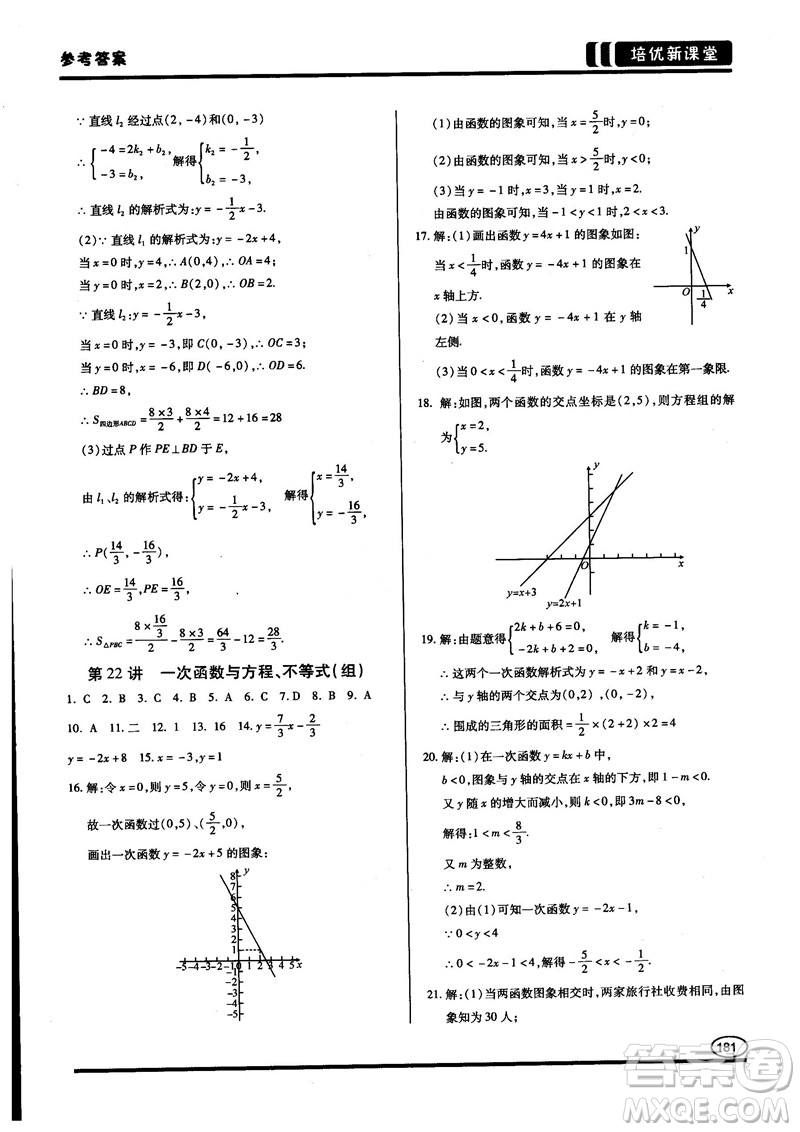 参考答案
培优新课堂
∵直线 l₂ 经过点(2,-4)和(0,-3)
∴{-4=2k₂+b₂, -3=b₂, 解得{k₂=-1/2, b₂=-3.
∴直线 l₂ 的解析式为:y=-1/2x-3.
(2)∵直线 l₁ 的解析式为:y=-2x+4
当 x=0 时,y=4,∴A(0,4),∴OA=4;
当 y=0 时,x=2,∴B(2,0),∴OB=2.
∵直线 l₂ 的解析式为:y=-1/2x-3,
当 x=0 时,y=-3,即 C(0,-3),∴OC=3;
当 y=0 时,x=-6,即 D(-6,0),∴OD=6.
∴BD=8,
∴S四边形ABCD=8×3/2+8×4/2=12+16=28
(3)过点 P 作 PE⊥BD 于 E,
由 l₁、l₂ 的解析式得:{y=-2x+4, y=-1/2x-3, 解得{x=14/3, y=-16/3,
∴P(14/3,-16/3),
∴OE=14/3,PE=16/3,
∴S△PBC=8×16/3/2-8×3/2=64/3-12=28/3
第 22 讲 一次函数与方程、不等式(组)
1. C 2. B 3. C 4. D 5. C 6. D 7. C 8. B 9. A
10. A 11. 二 12. 1 13. 16 14. y=7/3x-2/3
y=-2x+8 15. x<3,y<1
16. 解:令 x=0,则 y=5,令 y=0,则 x=5/2,
故一次函数过(0,5)、(5/2,0),
画出一次函数 y=-2x+5 的图象:
y
8
7
6
5
4
3
2
1
-5-4-3-2-10 1 2 3 4 5 x
-1
-2
-3
-4
-5
(1)由函数的图象可知,当 x=5/2时,y=0;
(2)由函数的图象可知,当 x>5/2时,y<0;
(3)当 y=-1 时,x=3,当 y=1 时,x=2,
由函数的图象可知,当 -1<y<1 时,2<x<3.
17. 解:(1)画出函数 y=4x+1 的图象如图:
当 x<1/4时,函数 y=-4x+1 的图象在
x 轴上方.
(2)当 x<0,函数 y=-4x+1 在 y 轴
左侧.
y
1
O 1/4 x
(3)当 0<x<1/4时,函数 y=-4x+1 的图象在第一象限.
18. 解:如图,两个函数的交点坐标是(2,5),则方程组的解
为{x=2, y=5.
y
O x
y=x+3 y=2x+1
19. 解:由题意得{2k+b+6=0; -2k+b+6=4, 解得{k=-1, b=-4.
∴这两个函数的解析式为 y=-x+2,y=x-2
∴与 y 轴的两个交点为(0,2),(0,-2)
∴围成的三角形的面积=1/2×(2+2)×2=4
20. 解:(1)在一次函数 y=kx+b 中,
b<0,图象与 y 轴的交点在 x 轴的下方,即 1-m<0.
又 y 随 x 的增大而减小,所以 k<0,即 3m-8<0,
解得:1<m<8/3.
又 m 为整数,
∴m=2.
(2)由(1)可知一次函数 y=-2x-1,
∵0<y<4
∴0<-2x-1<4,解得 -5/2<x<-1/2
21. 解:(1)当两函数图象相交时,两家旅行社收费相同,由图
象知为 30 人;
181
答案圈
MXQE.COM